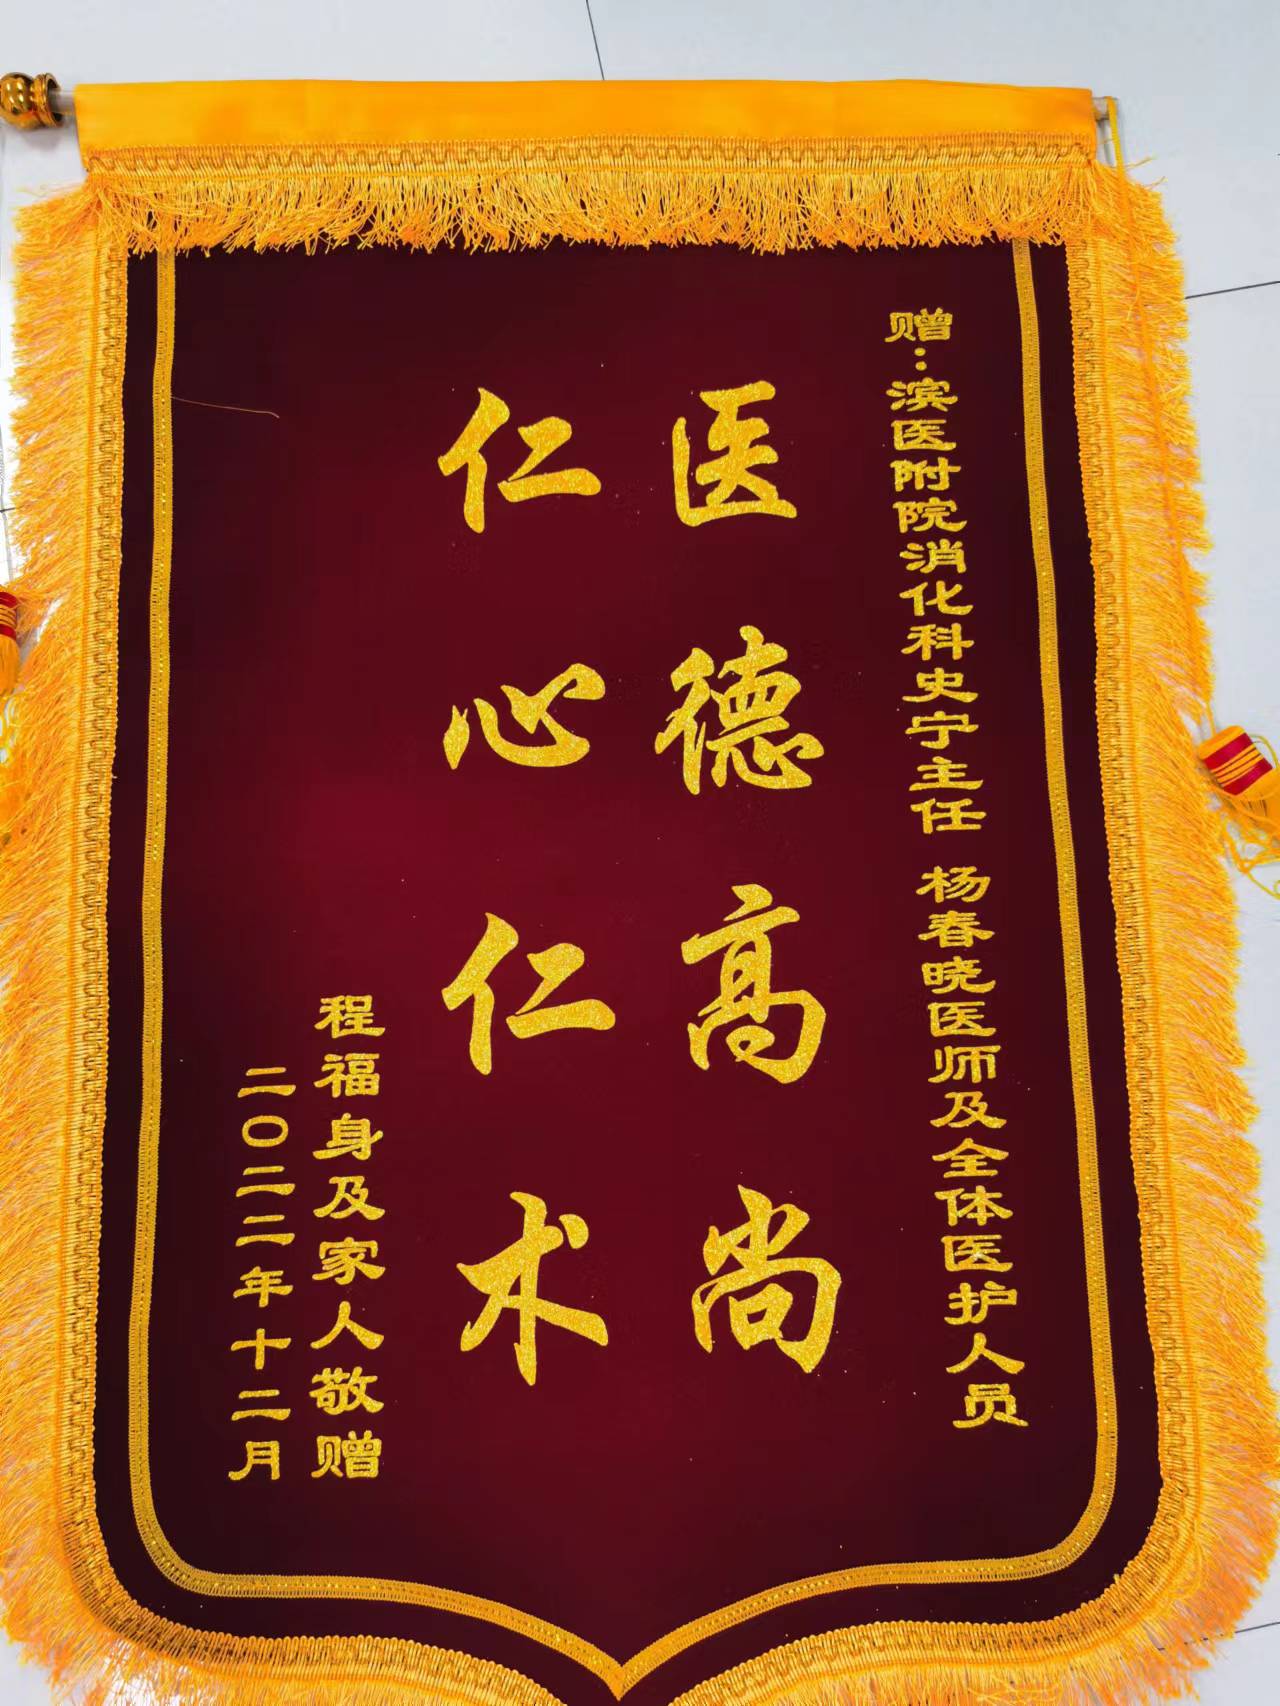 赠：滨医附院消化科史宁主任 杨春晓医师及全体医护人员
医德高尚
仁心仁术
程福身及家人敬赠
二〇二二年十二月